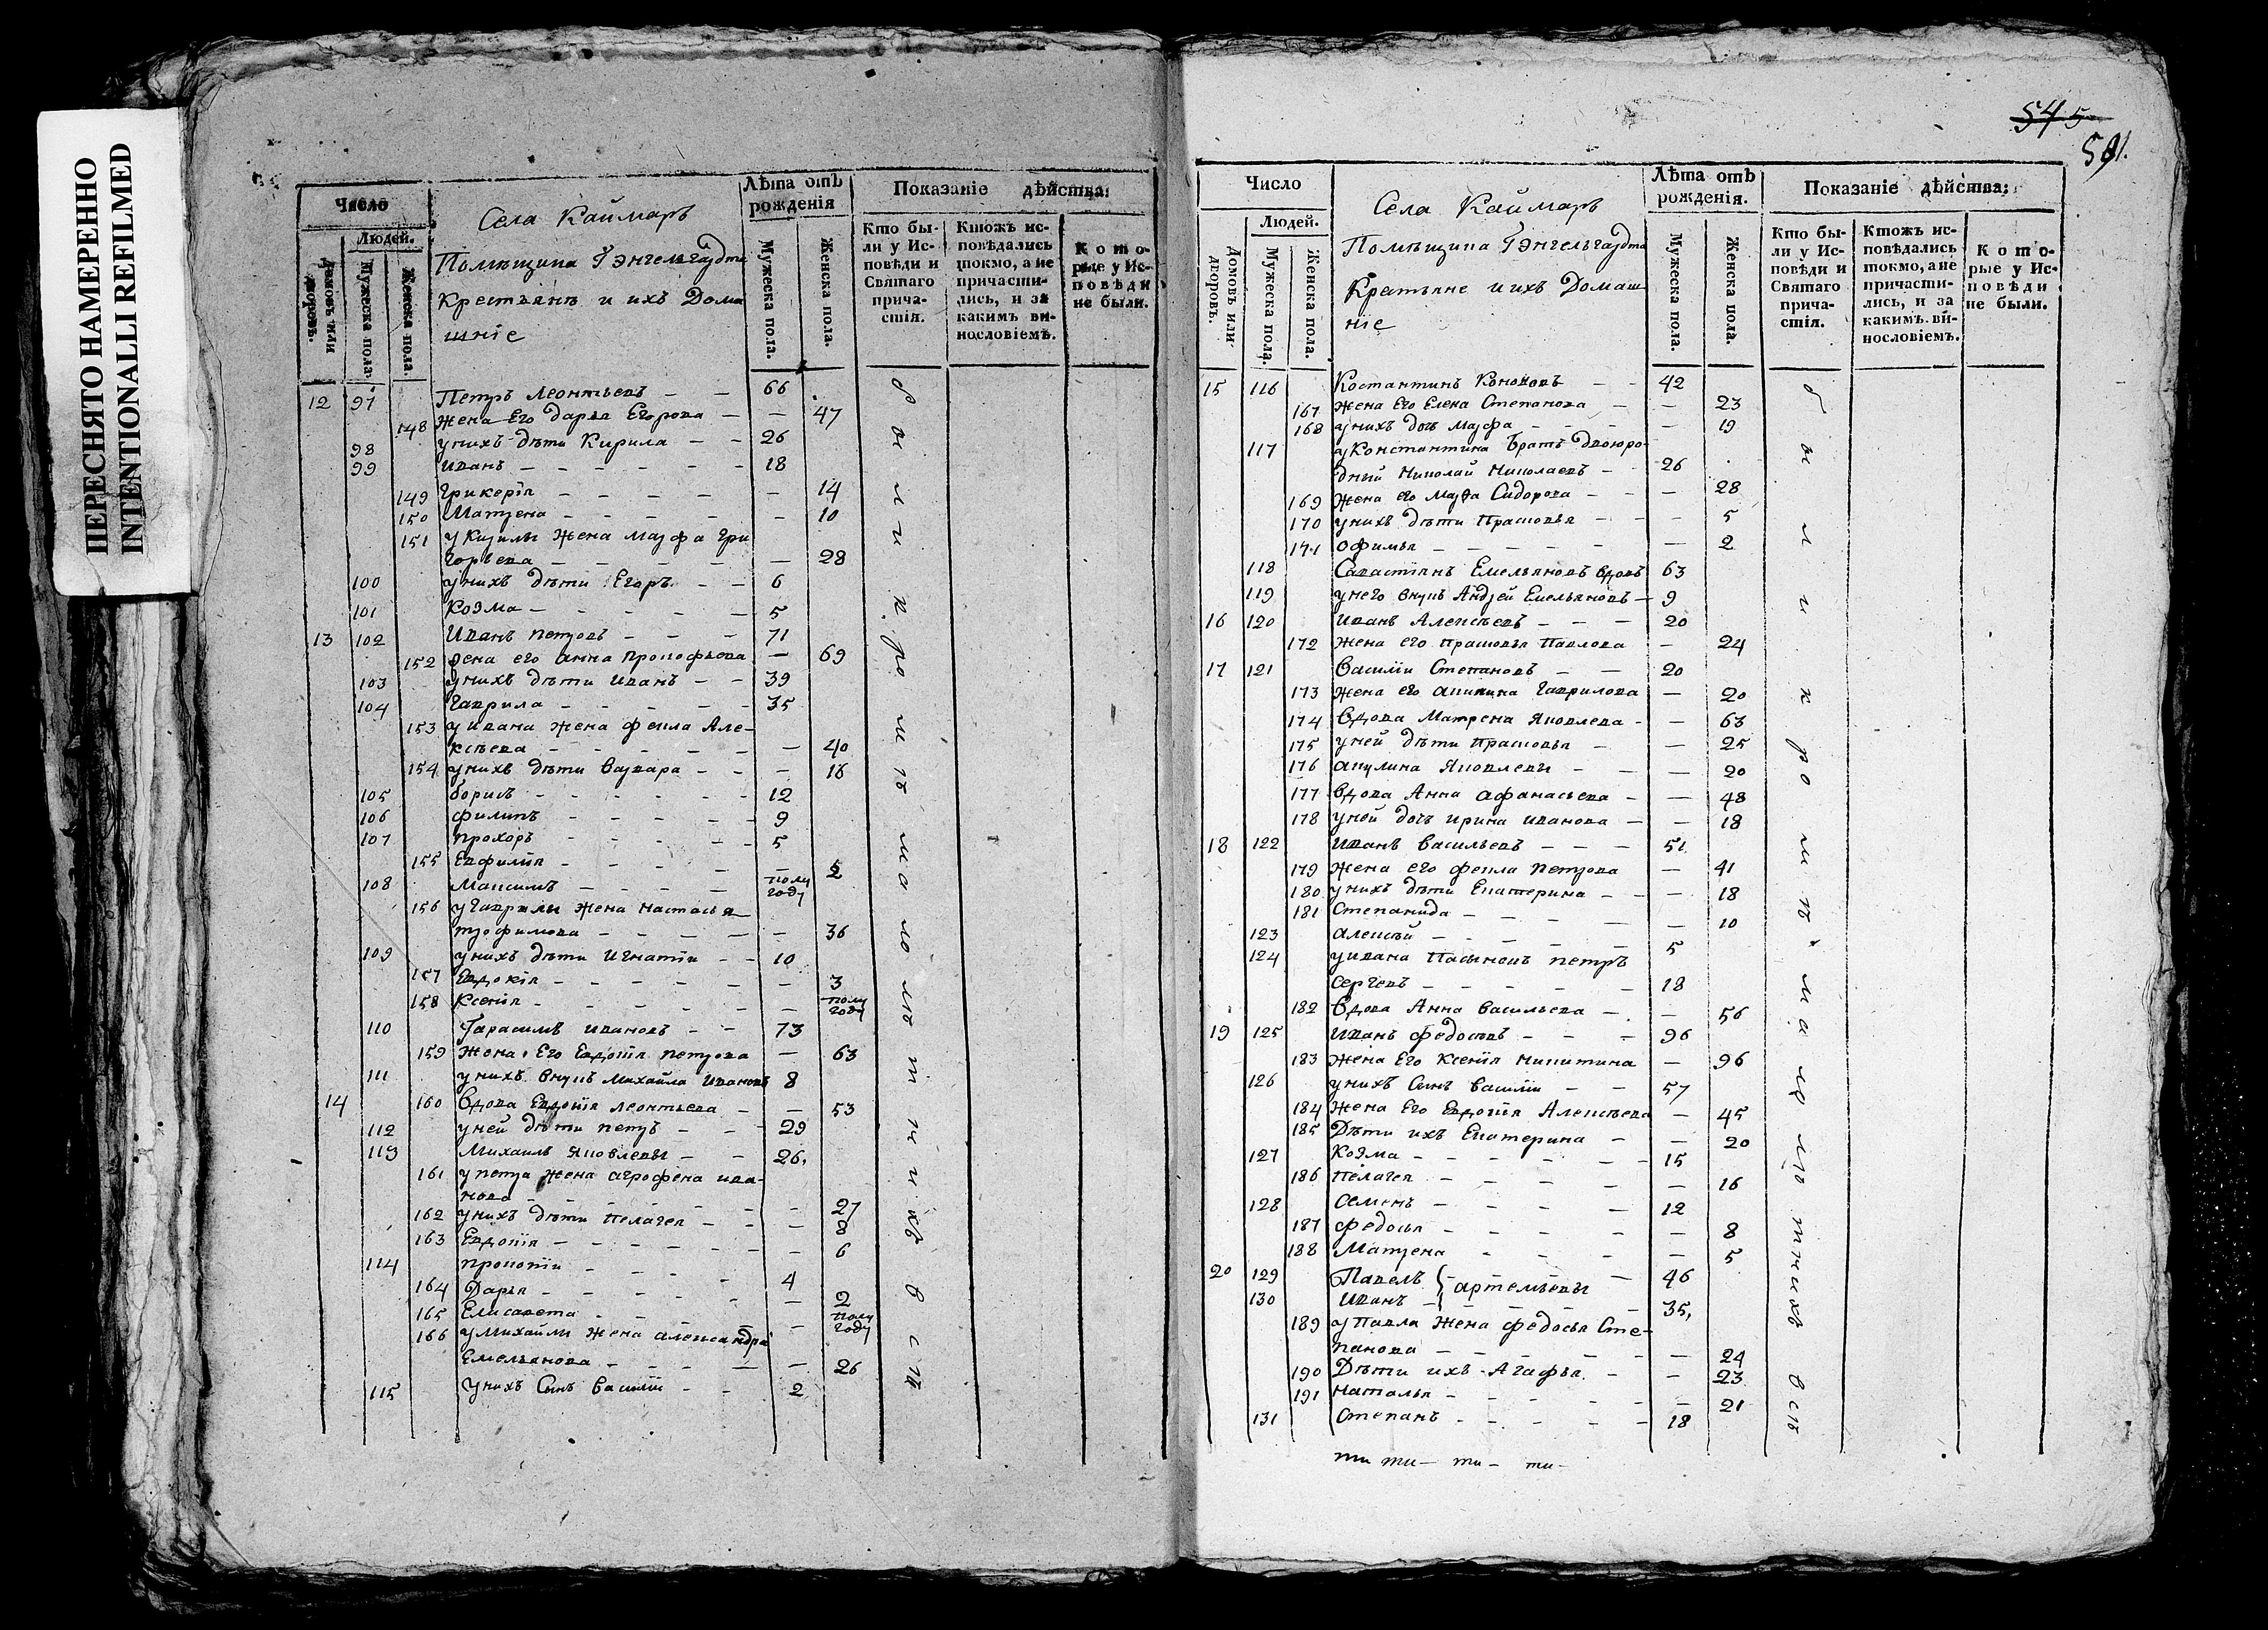 ПЕРЕСНЯТО НАМЕРЕННО
INTENTIONALLI REFILMED
Число
Людей.
Домовъ или дворовъ.
Мужеска пола.
Женска пола.
Села Каймаръ
Помѣщика Гэнгельгардта
Крестьянъ и ихъ Дома
шніе
Лѣта отъ рожденія
Мужеска пола.
Женска пола.
Показаніе дѣйства:
Кто бы-
ли у Ис-
повѣди и
Святаго
прича-
стія.
Ктожъ ис-
повѣдались
токмо, а не
причасти-
лись, и за
какимъ ви-
нословіемъ.
Кото-
рые у Ис-
повѣди
не были.
12 97 Петръ Леонтьевъ — — 66
148 жена Его Дарья Егорова — — 47
98 у нихъ дѣти Кирила — — 26
99 Иванъ — — — — — — 18
149 Гликерія — — — — — 14
150 Матрена — — — — — 10
151 у Кирилы жена Марфа Гри
горьева — — — — — 28
100 у нихъ дѣти Егоръ — — 6
101 Козма — — — — — 5
13 102 Иванъ Петровъ — — — 71
152 жена его Анна Прокофьева — 69
103 у нихъ дѣти Иванъ — — 39
104 Гаврила — — — — — 35
153 у Ивана жена Фекла Але-
ксѣева — — — — — — 40
154 у нихъ дѣти Варвара — — — 18
105 Борисъ — — — — — — 12
106 Филипъ — — — — — 9
107 Прохоръ — — — — 5
155 Евфилія — — — — — 2
108 Максимъ — — — — полу году
156 у Гаврилы жена Настасья
Трофимова — — — — — 36
109 у нихъ дѣти Игнатіи — — 10
157 Евдокія — — — — — — 3
158 Ксенія — — — — — — полу году
110 Гарасимъ Ивановъ — — 73
159 Жена Его Евдокія Петрова — 63
111 у нихъ внукъ Михайла Ивановъ 8
14 160 Вдова Евдокія Леонтьева — — 53
112 у ней дѣти Петръ — — — 29
113 Михаилъ Яковлевы — — 26.
161 у Петра жена Агрофена Ива-
нова — — — — — — 27
162 у нихъ дѣти Пелагея — — — 8
163 Евдокія — — — — — — — 6
114 Прокопіи — — — — 4
164 Дарья — — — — — — 2
165 Елисавета — — — — полу году
166 у Михайлы жена Александра
Емельянова — — — — — 26
115 у нихъ Сынъ Василіи — — 2
были и при томъ толкомъ ихъ всѣ
545
591.
Число
Людей.
Домовъ или дворовъ.
Мужеска пола.
Женска пола.
Села Каймаръ
Помѣщика Гэнгельгардта
Кратьяне и ихъ Домаш
ніе
Лѣта отъ рожденія.
Мужеска пола.
Женска пола.
Показаніе дѣйства:
Кто бы-
ли у Ис-
повѣди и
Святаго
прича-
стія.
Ктожъ ис-
повѣдались
токмо, а не
причасти-
лись, и за
какимъ ви-
нословіемъ.
Кото-
рые у Ис-
повѣди
не были.
15 116 Костантинъ Кононовъ — — 42
167 жена Его Елена Степанова — — 23
168 у нихъ дочь Марфа — — — — — 19
117 у Константина Братъ двоюро-
дный Николай Николаевъ — — 26
169 жена его Марфа Сидорова — — — 28
170 у нихъ дѣти Прасковья — — — 5
171 Офимья — — — — — — 2
118 Савастіянъ Емельяновъ вдовъ 63
119 у него внукъ Андрей Емельяновъ — 9
16 120 Иванъ Алексѣевъ — — — 20
172 жена его Прасковья Павлова — 24
17 121 Василіи Степановъ — — 20
173 жена его Акилина Гаврилова — 20
174 вдова Матрена Яковлева — — 63
175 у ней дѣти Прасковья — — 25
176 Акулина Яковлевы — — — 20
177 вдова Анна Афанасьева — — 48
178 у ней дочь Ирина Иванова — — 18
18 122 Иванъ Васильевъ — — — 51
179 жена его Фекла Петрова — 41
180 у нихъ дѣти Екатерина — — — 18
181 Степанида — — — — — 10
123 Алексѣй — — — — — 5
124 у Ивана Пасынокъ Петръ
Сергѣевъ — — — — — 18
182 Вдова Анна Васильева — — — 56
19 125 Иванъ Федосѣевъ — — — 96
183 жена Его Ксенія Никитина — 96
126 у нихъ Сынъ Василіи — — 57
184 жена Его Евдокія Алексѣева — 45
185 Дѣти ихъ Екатерина — — 20
127 Козма — — — — — — 15
186 Пелагея — — — — — 16
128 Семенъ — — — — 12
187 Федосья — — — — — 8
188 Матрена — — — — 5
20 129 Павелъ } Артемьевы — 46
130 Иванъ — — — — 35,
189 у Павла жена Федосья Сте-
панова — — — — — 24
190 Дѣти ихъ Агафья — — 23
191 Наталья — — — — — 21
131 Степанъ — — — — — 18
были
всѣ
ти ти — ти — ти —